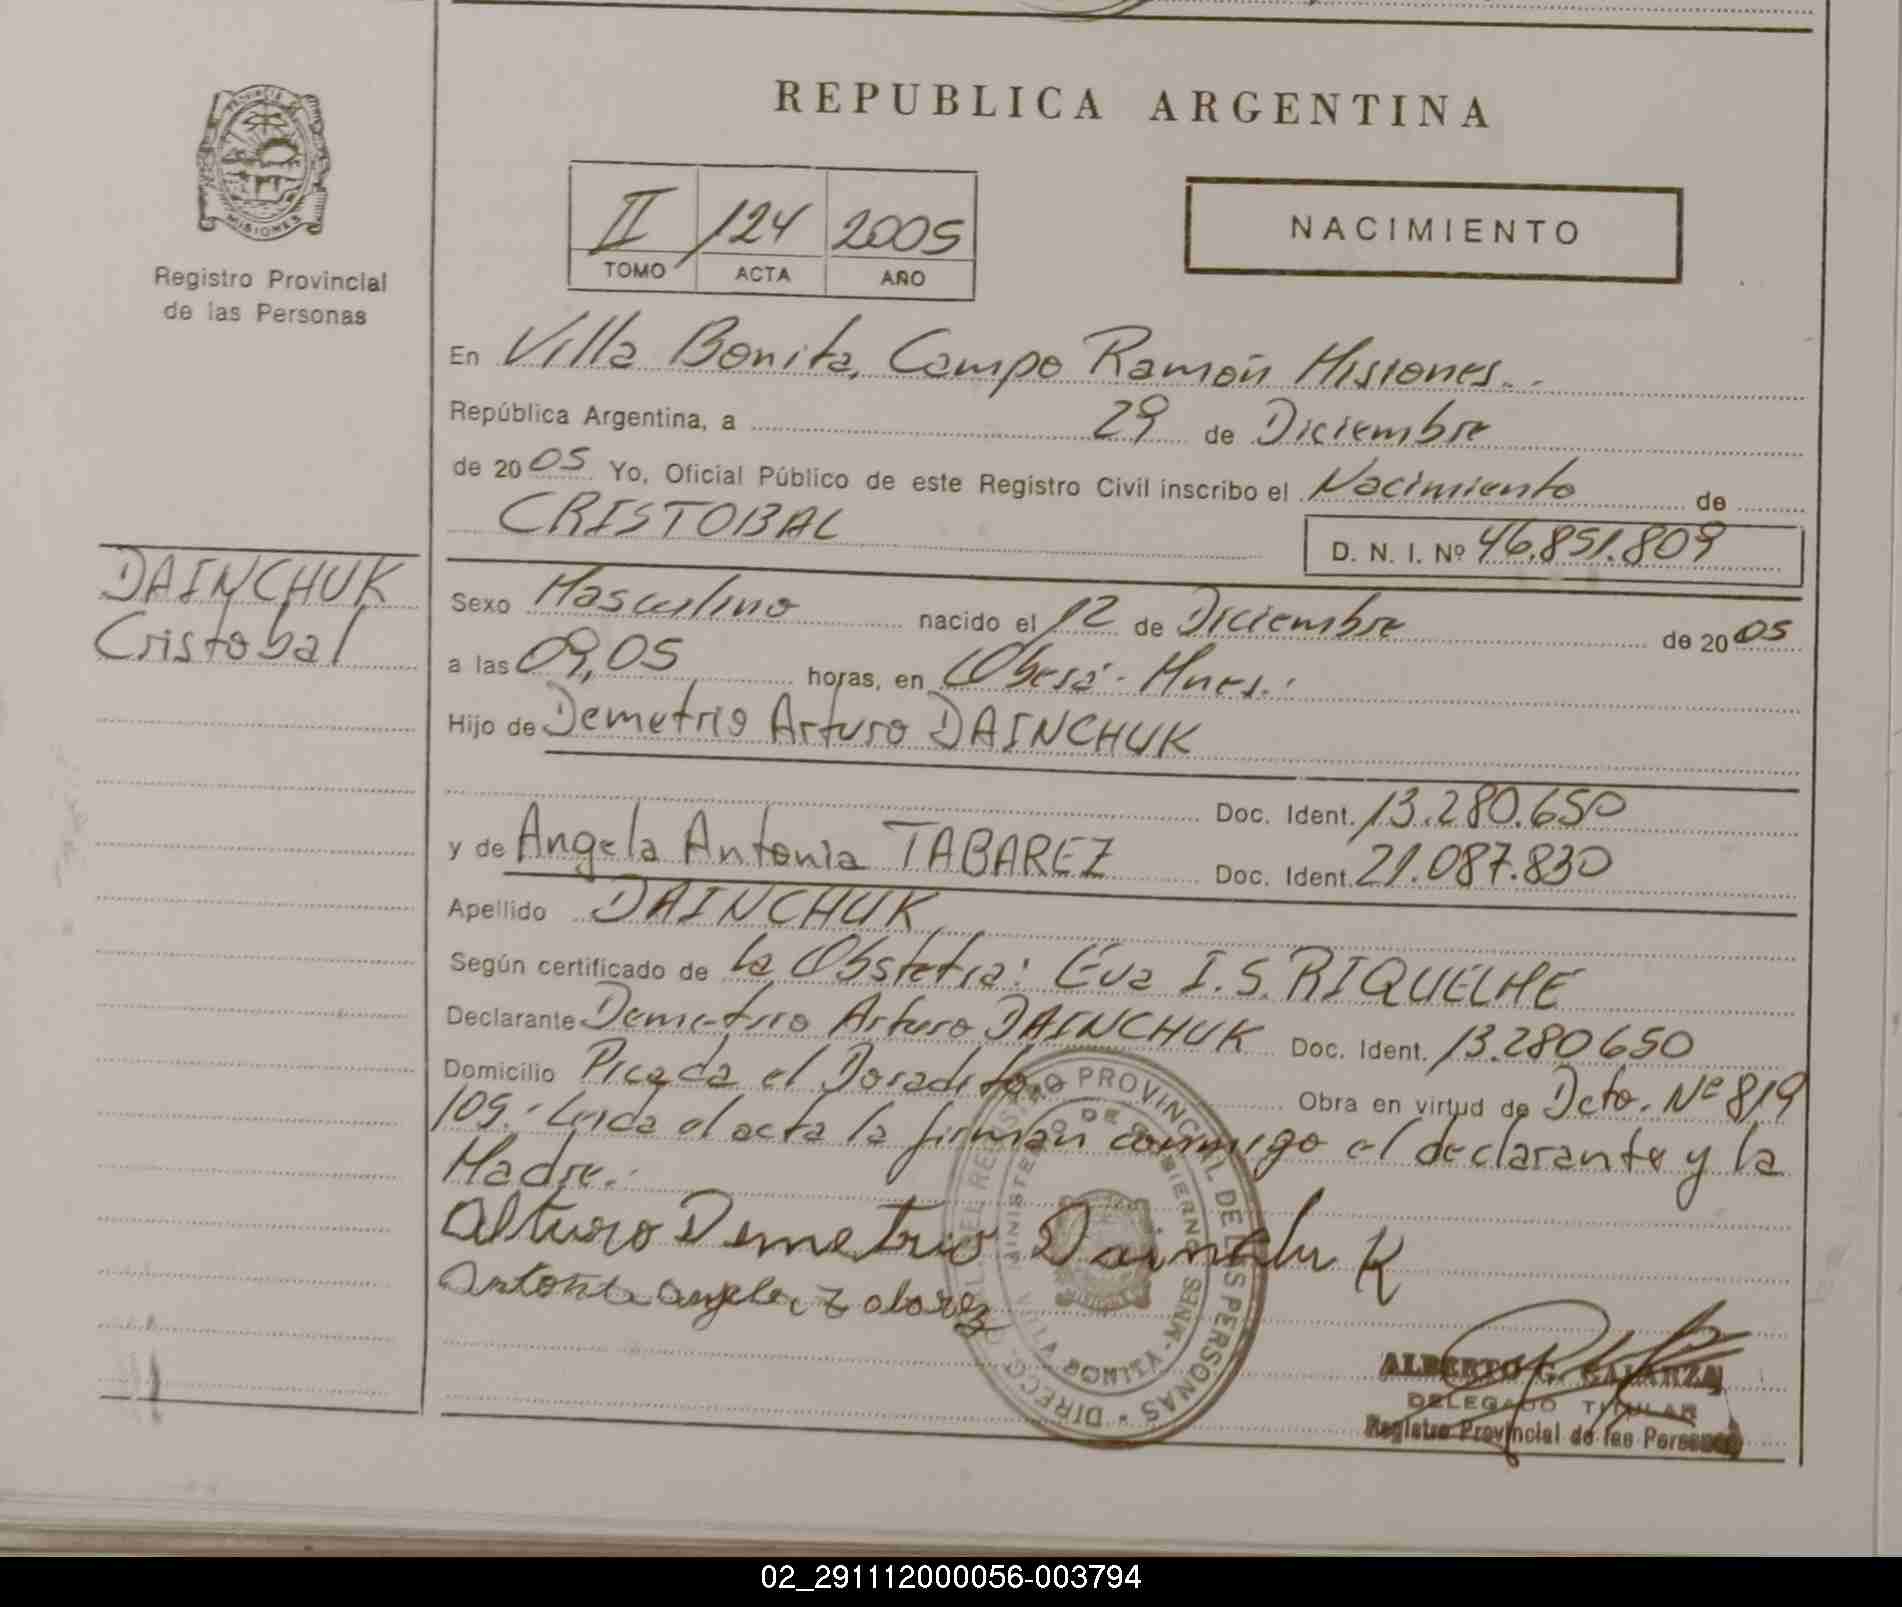 PROVINCIA DE
MISIONES
Registro Provincial
de las Personas
DAINCHUK
Cristobal
REPUBLICA ARGENTINA
II 124 2005
TOMO ACTA AÑO
NACIMIENTO
En Villa Bonita, Campo Ramón Misiones..
República Argentina, a 29 de Diciembre
de 2005 Yo, Oficial Público de este Registro Civil inscribo el Nacimiento de
CRISTOBAL D. N. I. Nº 46.851.809
Sexo Masculino nacido el 12 de Diciembre de 2005
a las 09,05 horas, en Oberá - Mnes.
Hijo de Demetrio Arturo DAINCHUK
Doc. Ident. 13.280.650
y de Angela Antonia TABAREZ Doc. Ident. 21.087.830
Apellido DAINCHUK
Según certificado de la Obstetra: Eva I. S. RIQUELME
Declarante Demetrio Arturo DAINCHUK Doc. Ident. 13.280650
Domicilio Picada el Doradito Obra en virtud de Dcto. Nº 819
109.- Leida el acta la firman conmigo el declarante y la
Madre.-
Arturo Demetrio Dainchuk
Antonia Angela Tabarez
REGISTRO PROVINCIAL DE LAS PERSONAS
MINISTERIO DE GOBIERNO
VILLA BONITA - MNES
ALBERTO G. GALARZA
DELEGADO TITULAR
Registro Provincial de las Personas
02_291112000056-003794